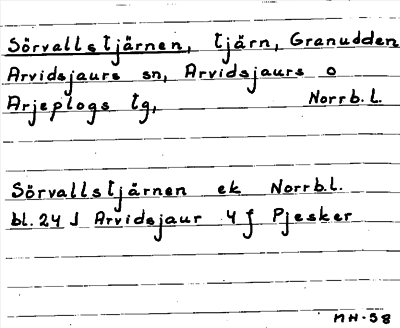 Sörvallstjärnen, tjärn, Granudden
Arvidsjaurs sn, Arvidsjaurs o
Arjeplogs tg, Norrb.l.
Sörvallstjärnen ek Norrb.l.
bl. 24 J Arvidsjaur 4 f Pjesker
MH-58